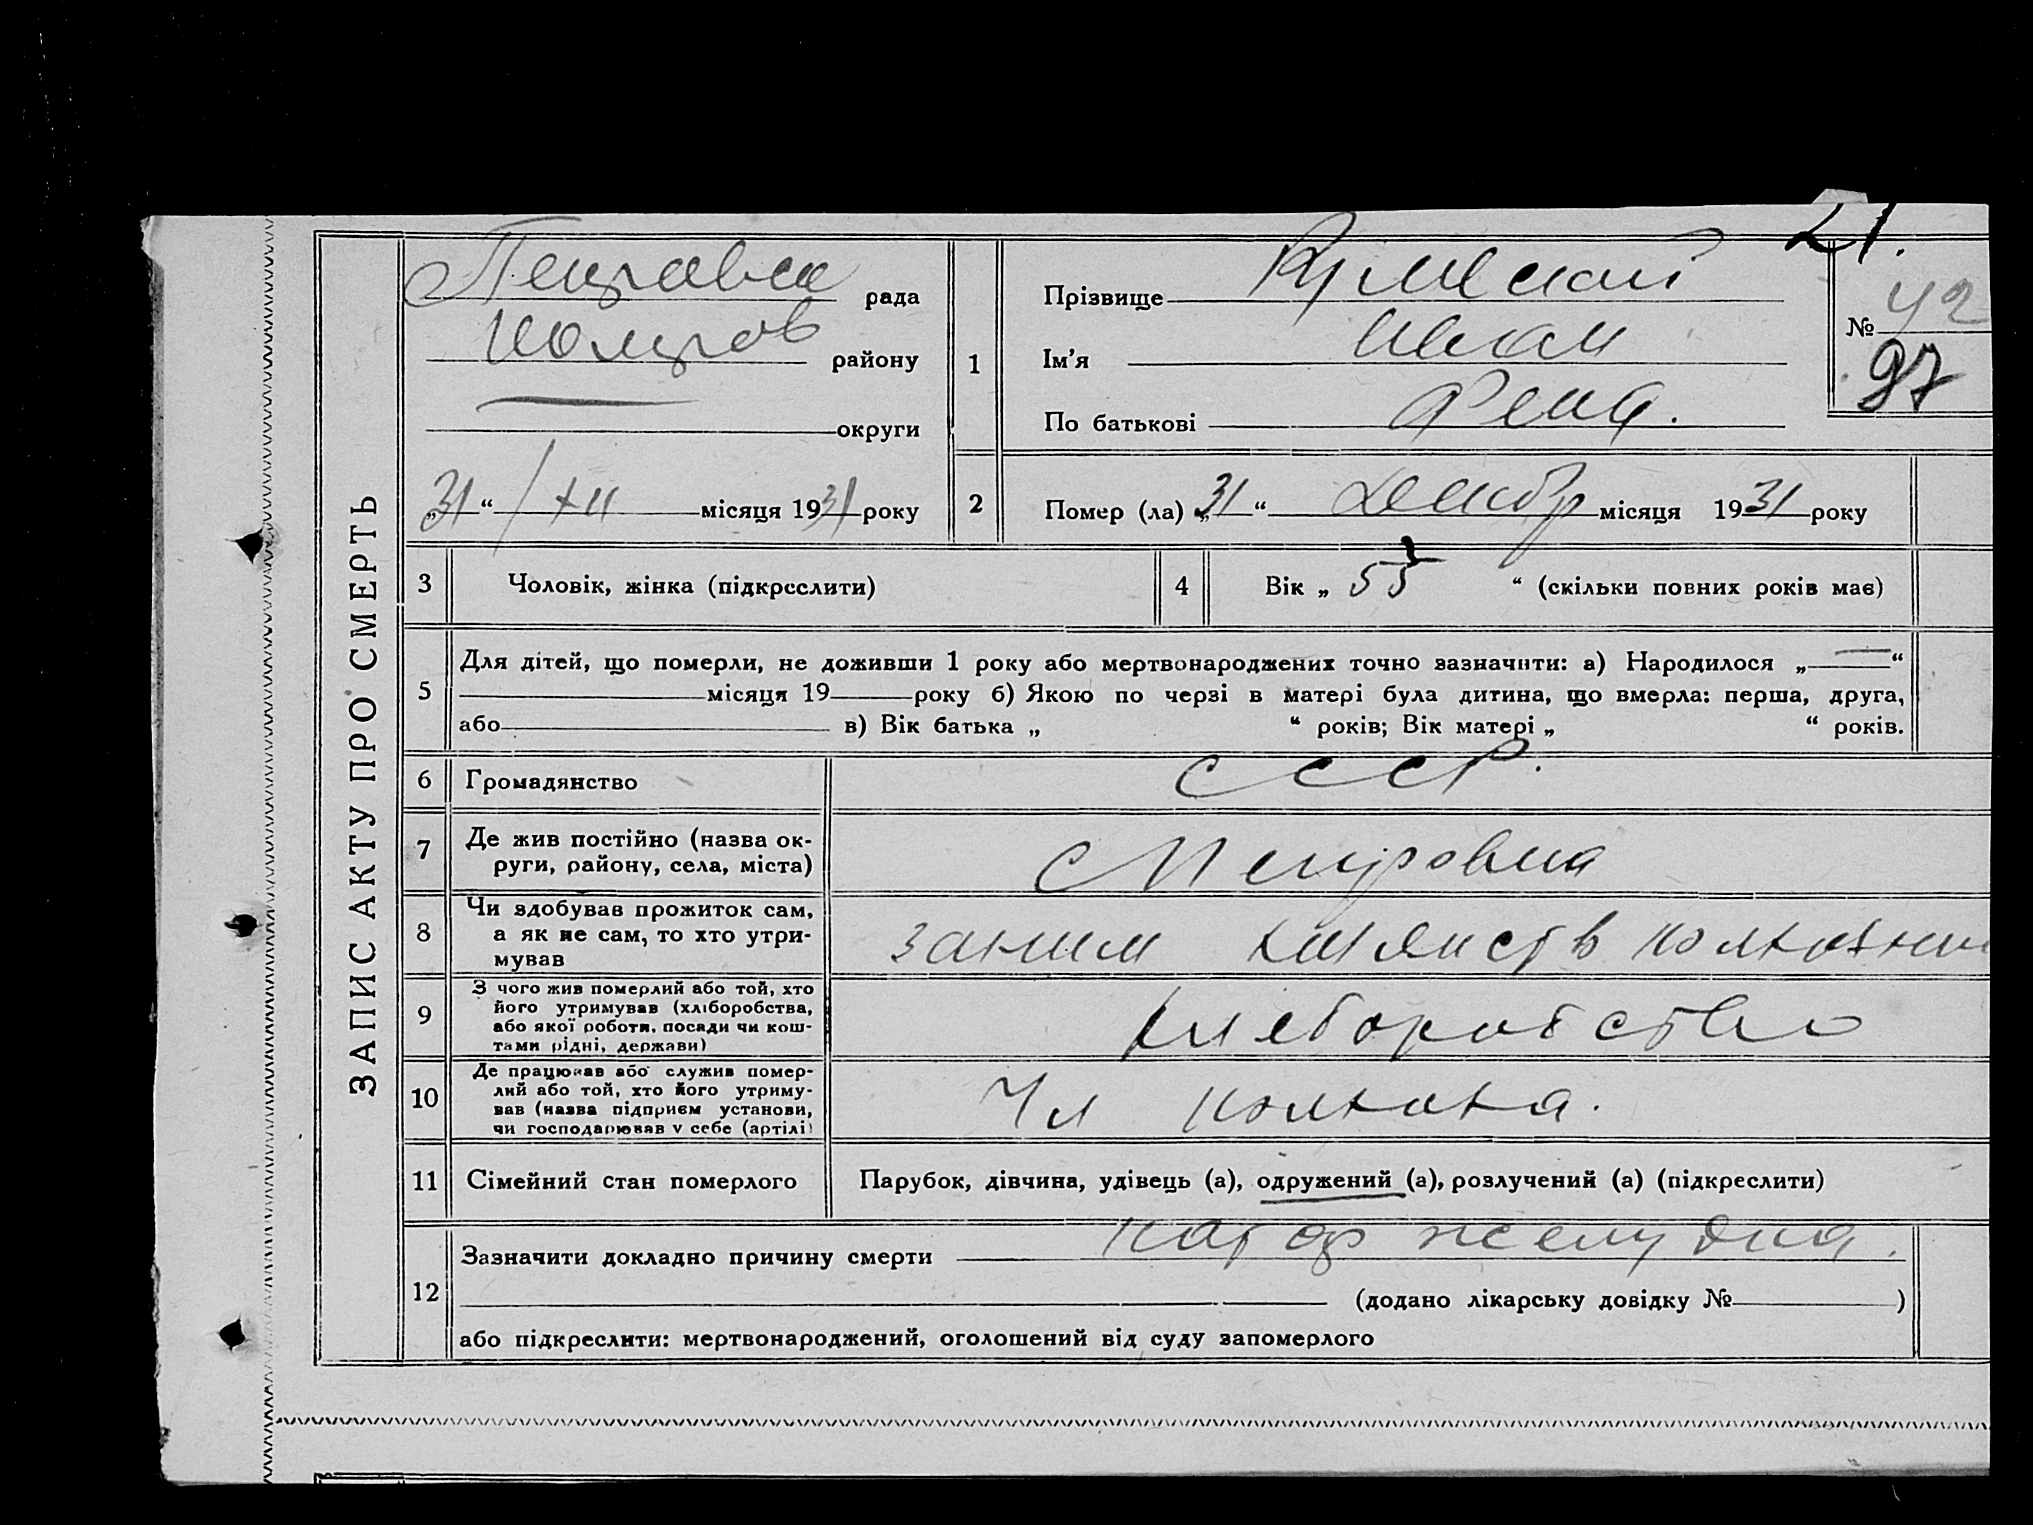 ЗАПИС АКТУ ПРО СМЕРТЬ
21.
Петровка рада
району
округи
„31“ / XII місяця 1931 року
1
Прізвище
Ім'я Иван
По батькові
№ 42
97
2
Помер (ла) „31“ Декабр місяця 1931 року
3
Чоловік, жінка (підкреслити)
4
Вік „55“ (скільки повних років має)
5
Для дітей, що померли, не доживши 1 року або мертвонароджених точно зазначити: а) Народилося „—“
місяця 19 року б) Якою по черзі в матері була дитина, що вмерла: перша, друга,
або в) Вік батька „ “ років; Вік матері „ “ років.
6
Громадянство
СССР.
7
Де жив постійно (назва ок-
руги, району, села, міста)
с Петровка
8
Чи здобував прожиток сам,
а як не сам, то хто утри-
мував
9
З чого жив померлий або той, хто
його утримував (хліборобства,
або якої роботи, посади чи кош-
тами рідні, держави)
хлеборобство
10
Де працював або служив помер-
лий або той, хто його утриму-
вав (назва підприєм установи,
чи господарював у себе (артілі)
Чл колхоза.
11
Сімейний стан померлого
Парубок, дівчина, удівець (а), одружений (а), розлучений (а) (підкреслити)
12
Зазначити докладно причину смерти катар желудка.
(додано лікарську довідку № )
або підкреслити: мертвонароджений, оголошений від суду запомерлого